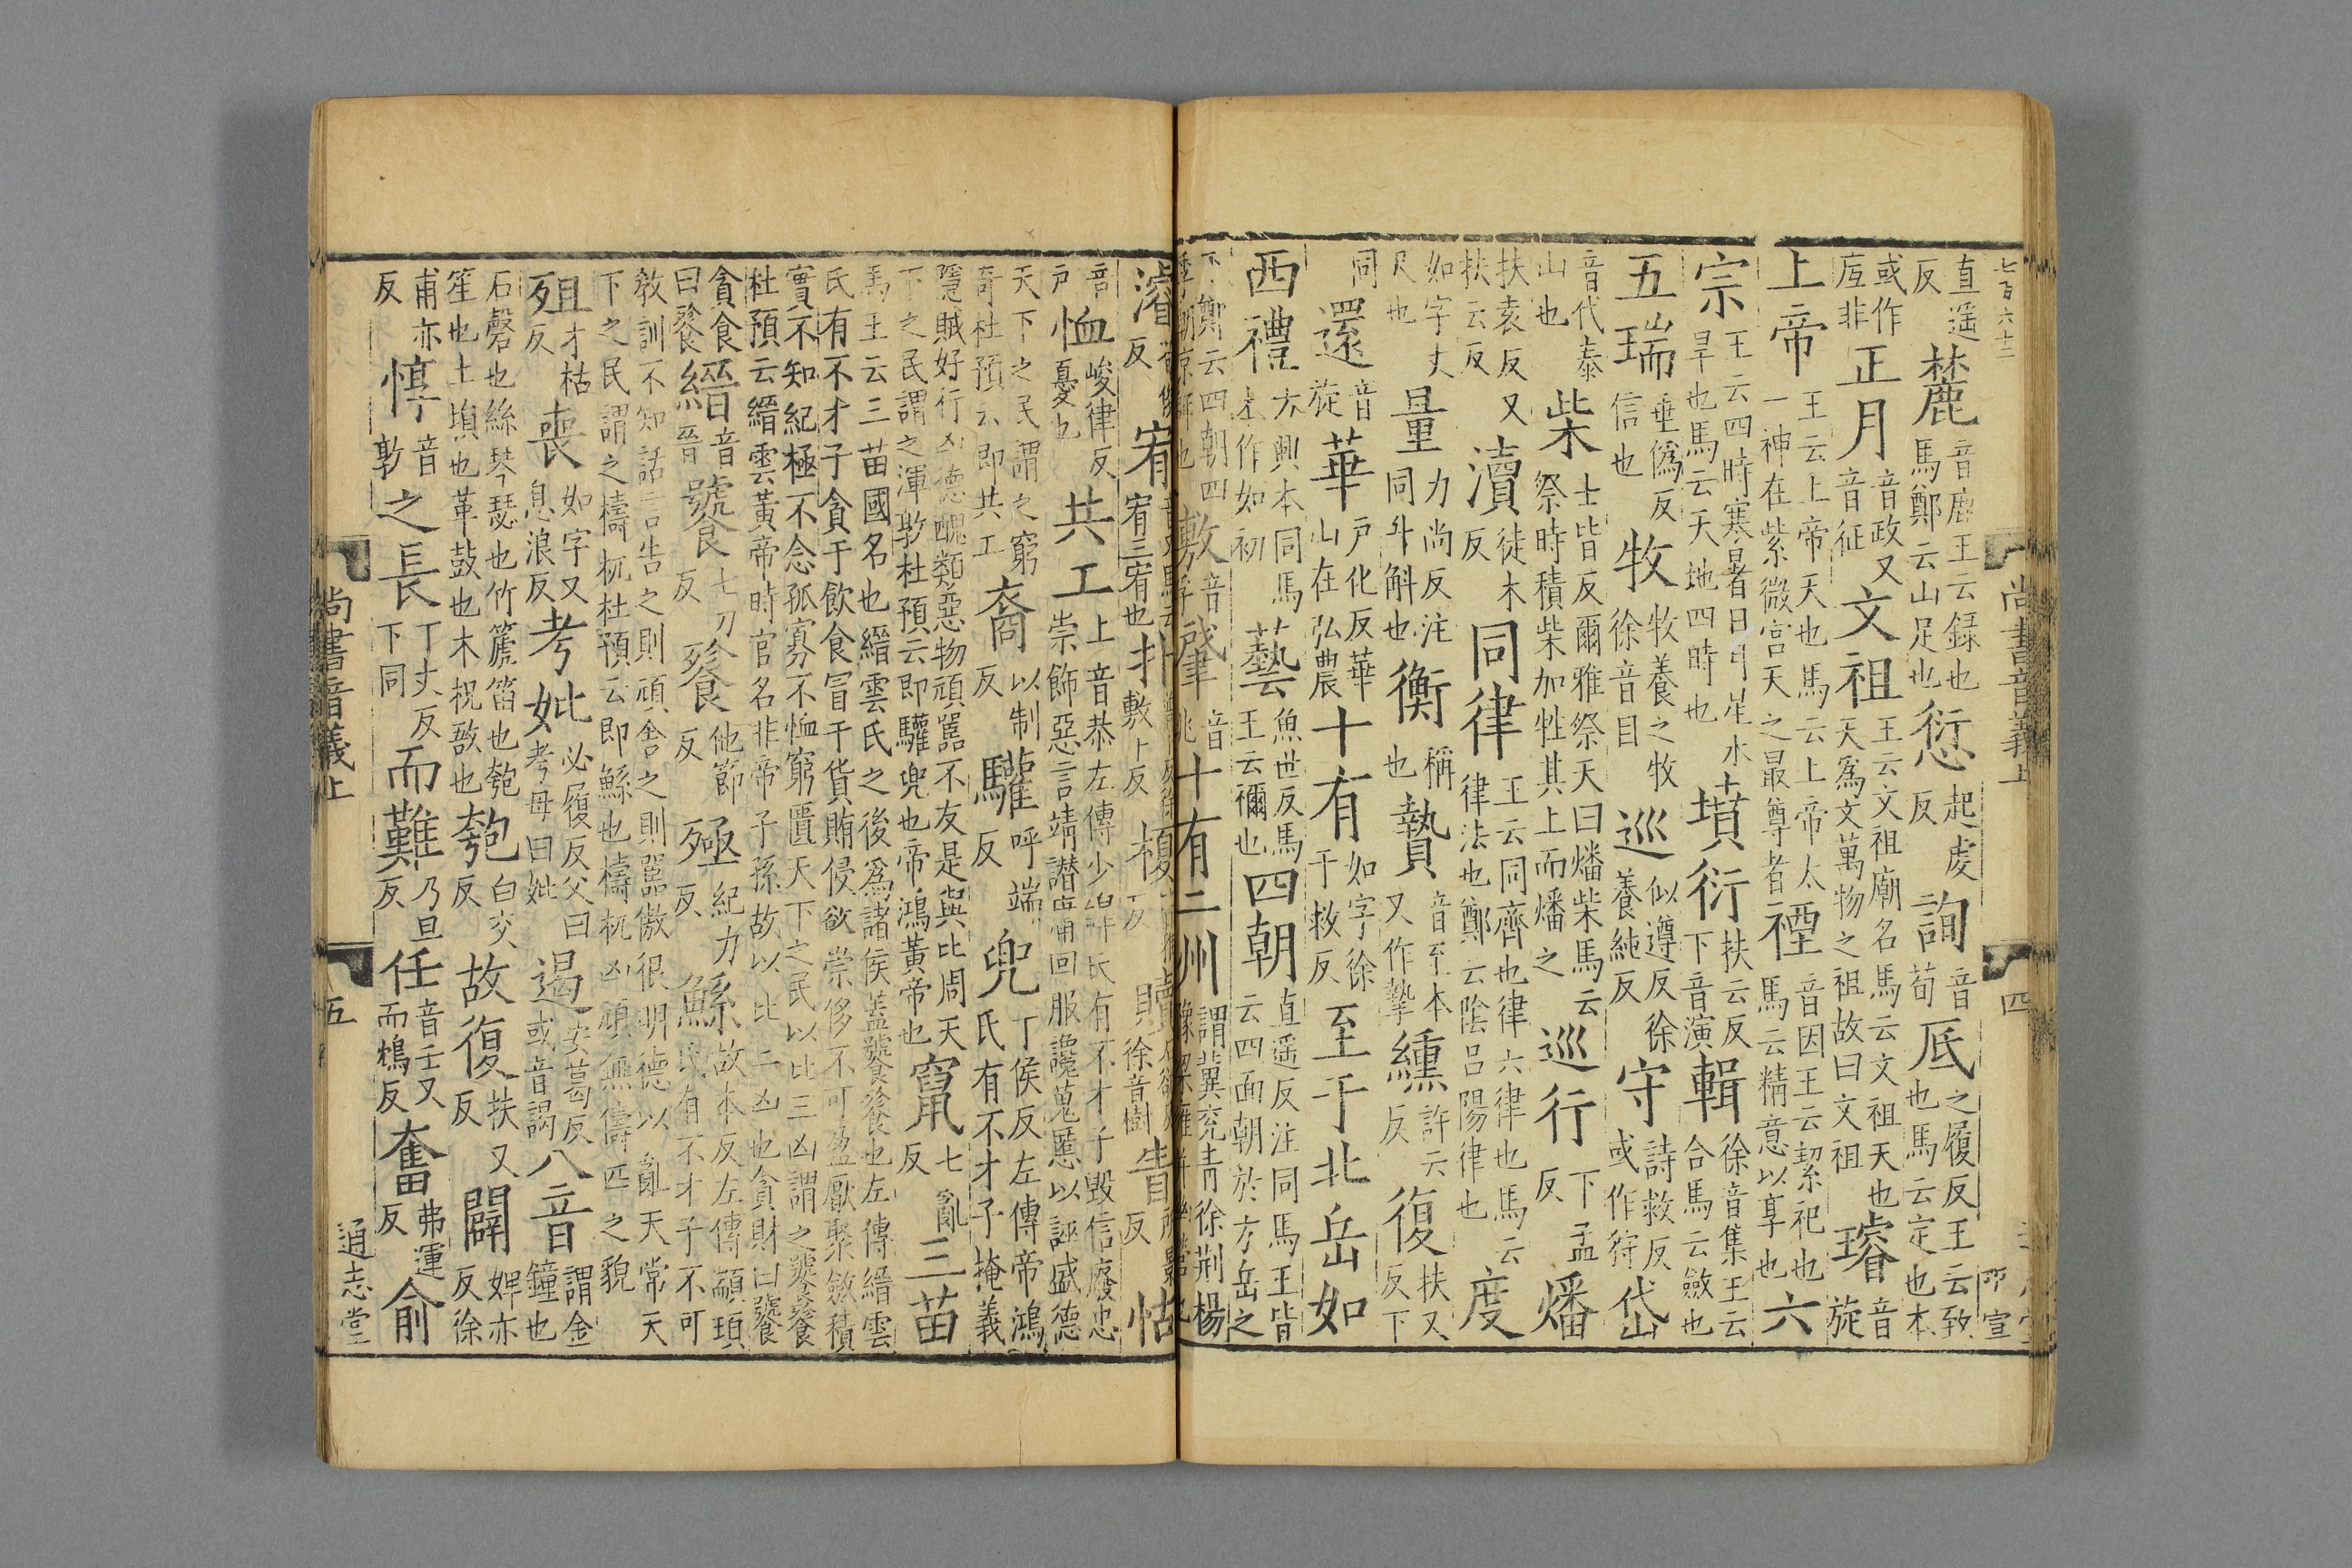 七百六十三
直遥反麓音鹿王云録也馬鄭云山足也愆起虔反詢音荀厎之履反王云致也馬云定也本
或作㡳非正月音政又音征文祖王云文祖廟名馬云文祖天也天爲文萬物之祖故曰文祖璿音旋
上帝王云上帝天也馬云上帝太一神在紫微宫天之最尊者禋音因王云絜祀也馬云精意以享也六
宗王云四時寒暑日月星水旱也馬云天地四時也墳衍扶云反下音演輯徐音集王云合馬云斂也
五瑞垂僞反信也牧牧養之牧徐音目巡似遵反徐養純反守詩救反或作狩岱
音代泰山也柴士皆反爾雅祭天曰燔柴馬云祭時積柴加牲其上而燔之巡行下孟反燔
扶袁反又扶云反瀆徒木反同律王云同齊也律六律也馬云律法也鄭云陰吕陽律也度
如字丈尺也量力尚反注同斗斛也衡稱也贄音至本又作摯纁許云反復扶又反下
同還音旋華戶化反華山在弘農十有如字徐于救反至于北岳如
西禮方興本同馬本作如初藝魚世反馬王云禰也四朝直遥反注同馬王皆云四面朝於方岳之
下鄭云四朝四季朝京師也敷音孚肈音兆十有二州謂冀兖青徐荆楊豫梁雍并幽營也
尚書音義上 四
濬荀俊反宥音又馬云宥三宥也扑普卜反徐敷卜反榎古雅反贖石欲反徐音樹眚所景反怙
音戶恤峻律反憂也共工上音恭左傳少皥氏有不才子毀信廢忠崇飾惡言靖譖庸回服讒蒐慝以誣盛德
天下之民謂之窮奇杜預云即共工裔以制反驩呼端反兜丁侯反左傳帝鴻氏有不才子掩義
隱賊好行凶德醜類惡物頑嚚不友是與比周天下之民謂之渾敦杜預云即驩兜也帝鴻黄帝也竄七亂反三苗
馬王云三苗國名也縉雲氏之後爲諸侯蓋饕餮也左傳縉雲氏有不才子貪于飲食冒于貨賄侵欲崇侈不可盈厭聚斂積
實不知紀極不念孤寡不恤窮匱天下之民以比三凶謂之饕餮杜預云縉雲黄帝時官名非帝子孫故以比三凶也貪財曰饕
貪食曰餮縉音晉饕七刀反餮他節反殛紀力反鯀故本反左傳顓頊氏有不才子不可
教訓不知話言告之則頑舍之則嚚傲很明德以亂天常天下之民謂之檮杌杜預云即鯀也檮杌凶頑無儔匹之貌
殂才枯反喪如字又息浪反考妣必履反父曰考母曰妣遏安葛反或音謁八音謂金鐘也
石磬也絲琴瑟也竹篪笛也匏笙也土塤也革鼓也木柷敔也匏白交反故復扶又反闢婢亦反徐
甫亦反惇音敦之長丁丈反下同而難乃旦反任音壬又而鴆反奮弗運反俞
尚書音義上 五 通志堂